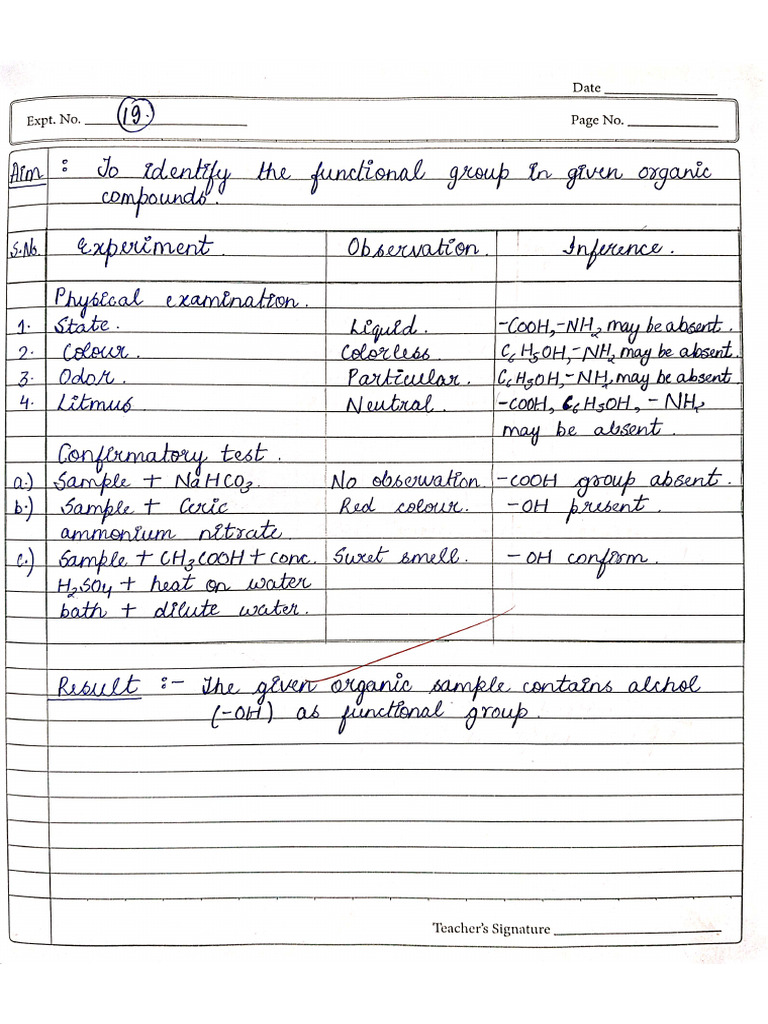 Date
Expt. No. 19.
Page No.
Aim : To identify the functional group in given organic
compounds.
S.No. Experiment. Observation. Inference.
Physical examination.
1. State. Liquid. -COOH, -NH2 may be absent.
2. Colour. Colorless C6H5OH, -NH2 may be absent.
3. Odor. Particular. C6H5OH, -NH2 may be absent
4. Litmus Neutral. -COOH, C6H5OH, -NH2
may be absent.
Confirmatory test.
a.) Sample + NaHCO3. No observation -COOH group absent.
b.) Sample + Ceric Red colour. -OH present.
ammonium nitrate.
c.) Sample + CH3COOH + conc. Sweet smell. -OH confirm.
H2SO4 + heat on water
bath + dilute water.
Result :- The given organic sample contains alchol
(-OH) as functional group.
Teacher's Signature